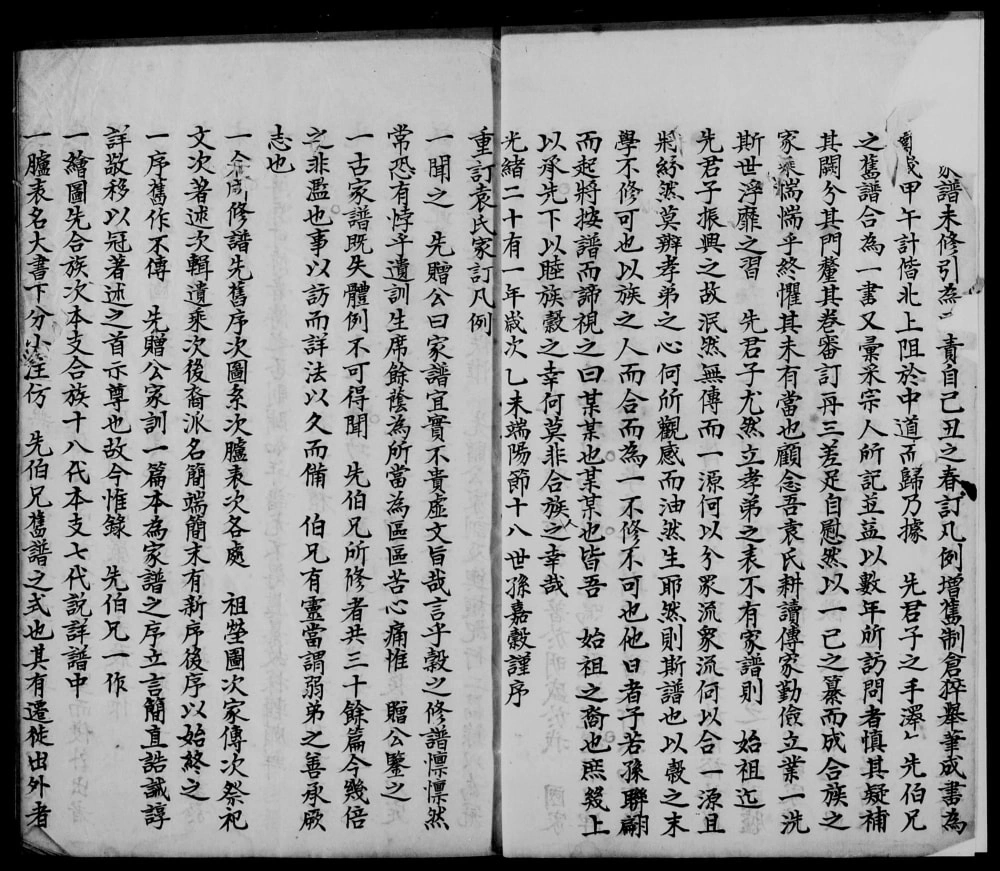 家譜未修引為 責自己丑之春訂凡例增舊制倉猝舉筆成書為
歲甲午計偕北上阻於中道而歸乃據 先君子之手澤 先伯兄
之舊譜合為一書又彙采宗人所記並益以數年所訪問者慎其疑補
其闕分其門釐其卷審訂再三差足自慰然以一己之纂而成合族之
家乘惴惴乎終懼其未有當也顧念吾袁氏耕讀傳家勤儉立業一洗
斯世浮靡之習 先君子尤然立孝弟之表不有家譜則 始祖迄
先君子振興之故泯然無傳而一源何以分眾流眾流何以合一源且
將紛然莫辨孝弟之心何所觀感而油然生耶然則斯譜也以縠之末
學不修可也以族之人而合而為一不修不可也他日者子若孫聯翩
而起將按譜而諦視之曰某某也某某也皆吾 始祖之裔也庶幾上
以承先下以睦族縠之幸何莫非合族之人之幸哉
光緒二十有一年歲次乙未端陽節十八世孫嘉縠謹序
重訂袁氏家訂凡例
一聞之 先贈公曰家譜宜實不貴虛文旨哉言乎縠之修譜懍懍然
常恐有悖乎遺訓生席餘蔭為所當為區區苦心痛惟 贈公鑒之
一古家譜既失體例不可得聞 先伯兄所修者共三十餘篇今幾倍
之非濫也事以訪而詳法以久而備 伯兄有靈當謂弱弟之善承厥
志也
一今次修譜先舊序次圖系次臚表次各處 祖塋圖次家傳次祭祀
文次著述次輯遺乘次後裔派名簡端簡末有新序後序以始終之
一序舊作不傳 先贈公家訓一篇本為家譜之序立言簡直誥誡諄
詳敬移以冠著述之首示尊也故今惟錄 先伯兄一作
一繪圖先合族次本支合族十八代本支七代說詳譜中
一臚表名大書下分小注仿 先伯兄舊譜之式也其有遷徙出外者